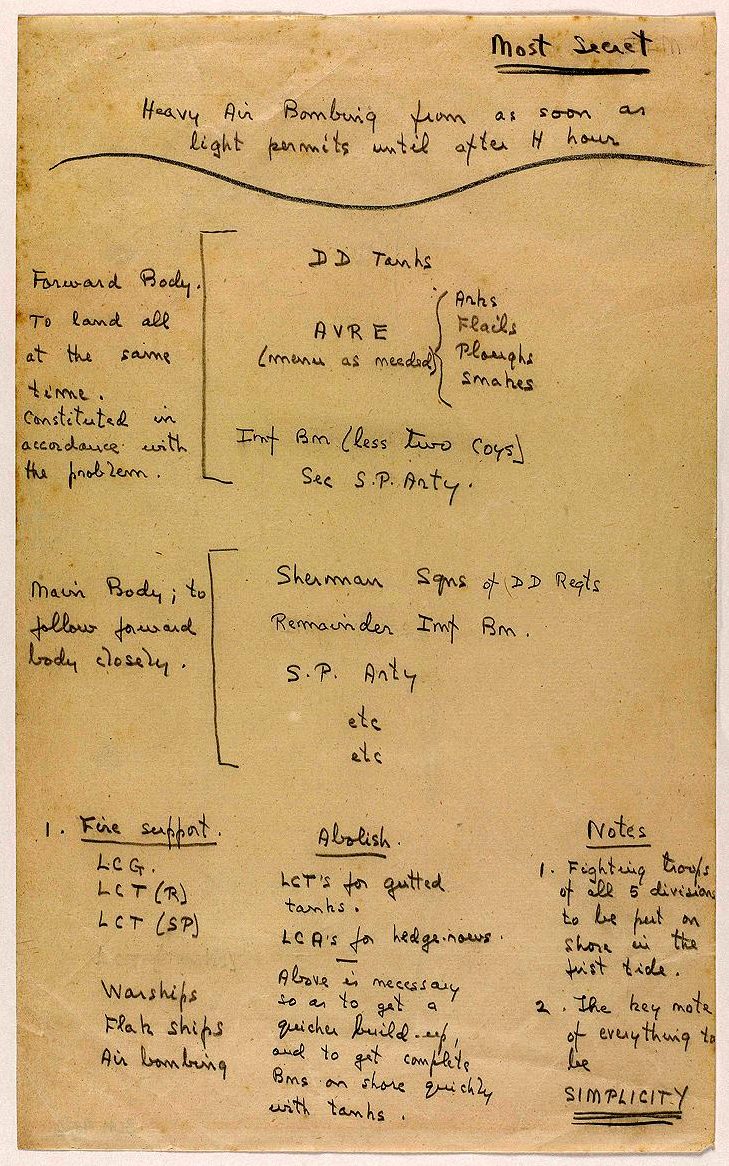 Most Secret
Heavy Air Bombing from as soon as
light permits until after H hour
Forward Body.
To land all
at the same
time.
Constituted in
accordance with
the problem.
DD Tanks
AVRE
(menu as needed)
Arks
Flails
Ploughs
Snakes
Inf Bn (less two Coys)
Sec S.P. Arty.
Main Body; to
follow forward
body closely.
Sherman Sqns of DD Regts
Remainder Inf Bn.
S.P. Arty
etc
etc
1. Fire support.
LCG.
LCT (R)
LCT (SP)
Warships
Flak ships
Air bombing
Abolish.
LCT's for gutted
tanks.
LCA's for hedge-rows.
Above is necessary
so as to get a
quicker build-up,
and to get complete
Bns on shore quickly
with tanks.
Notes
1. Fighting troops
of all 5 divisions
to be put on
shore in the
first tide.
2. The key note
of everything to
be
SIMPLICITY